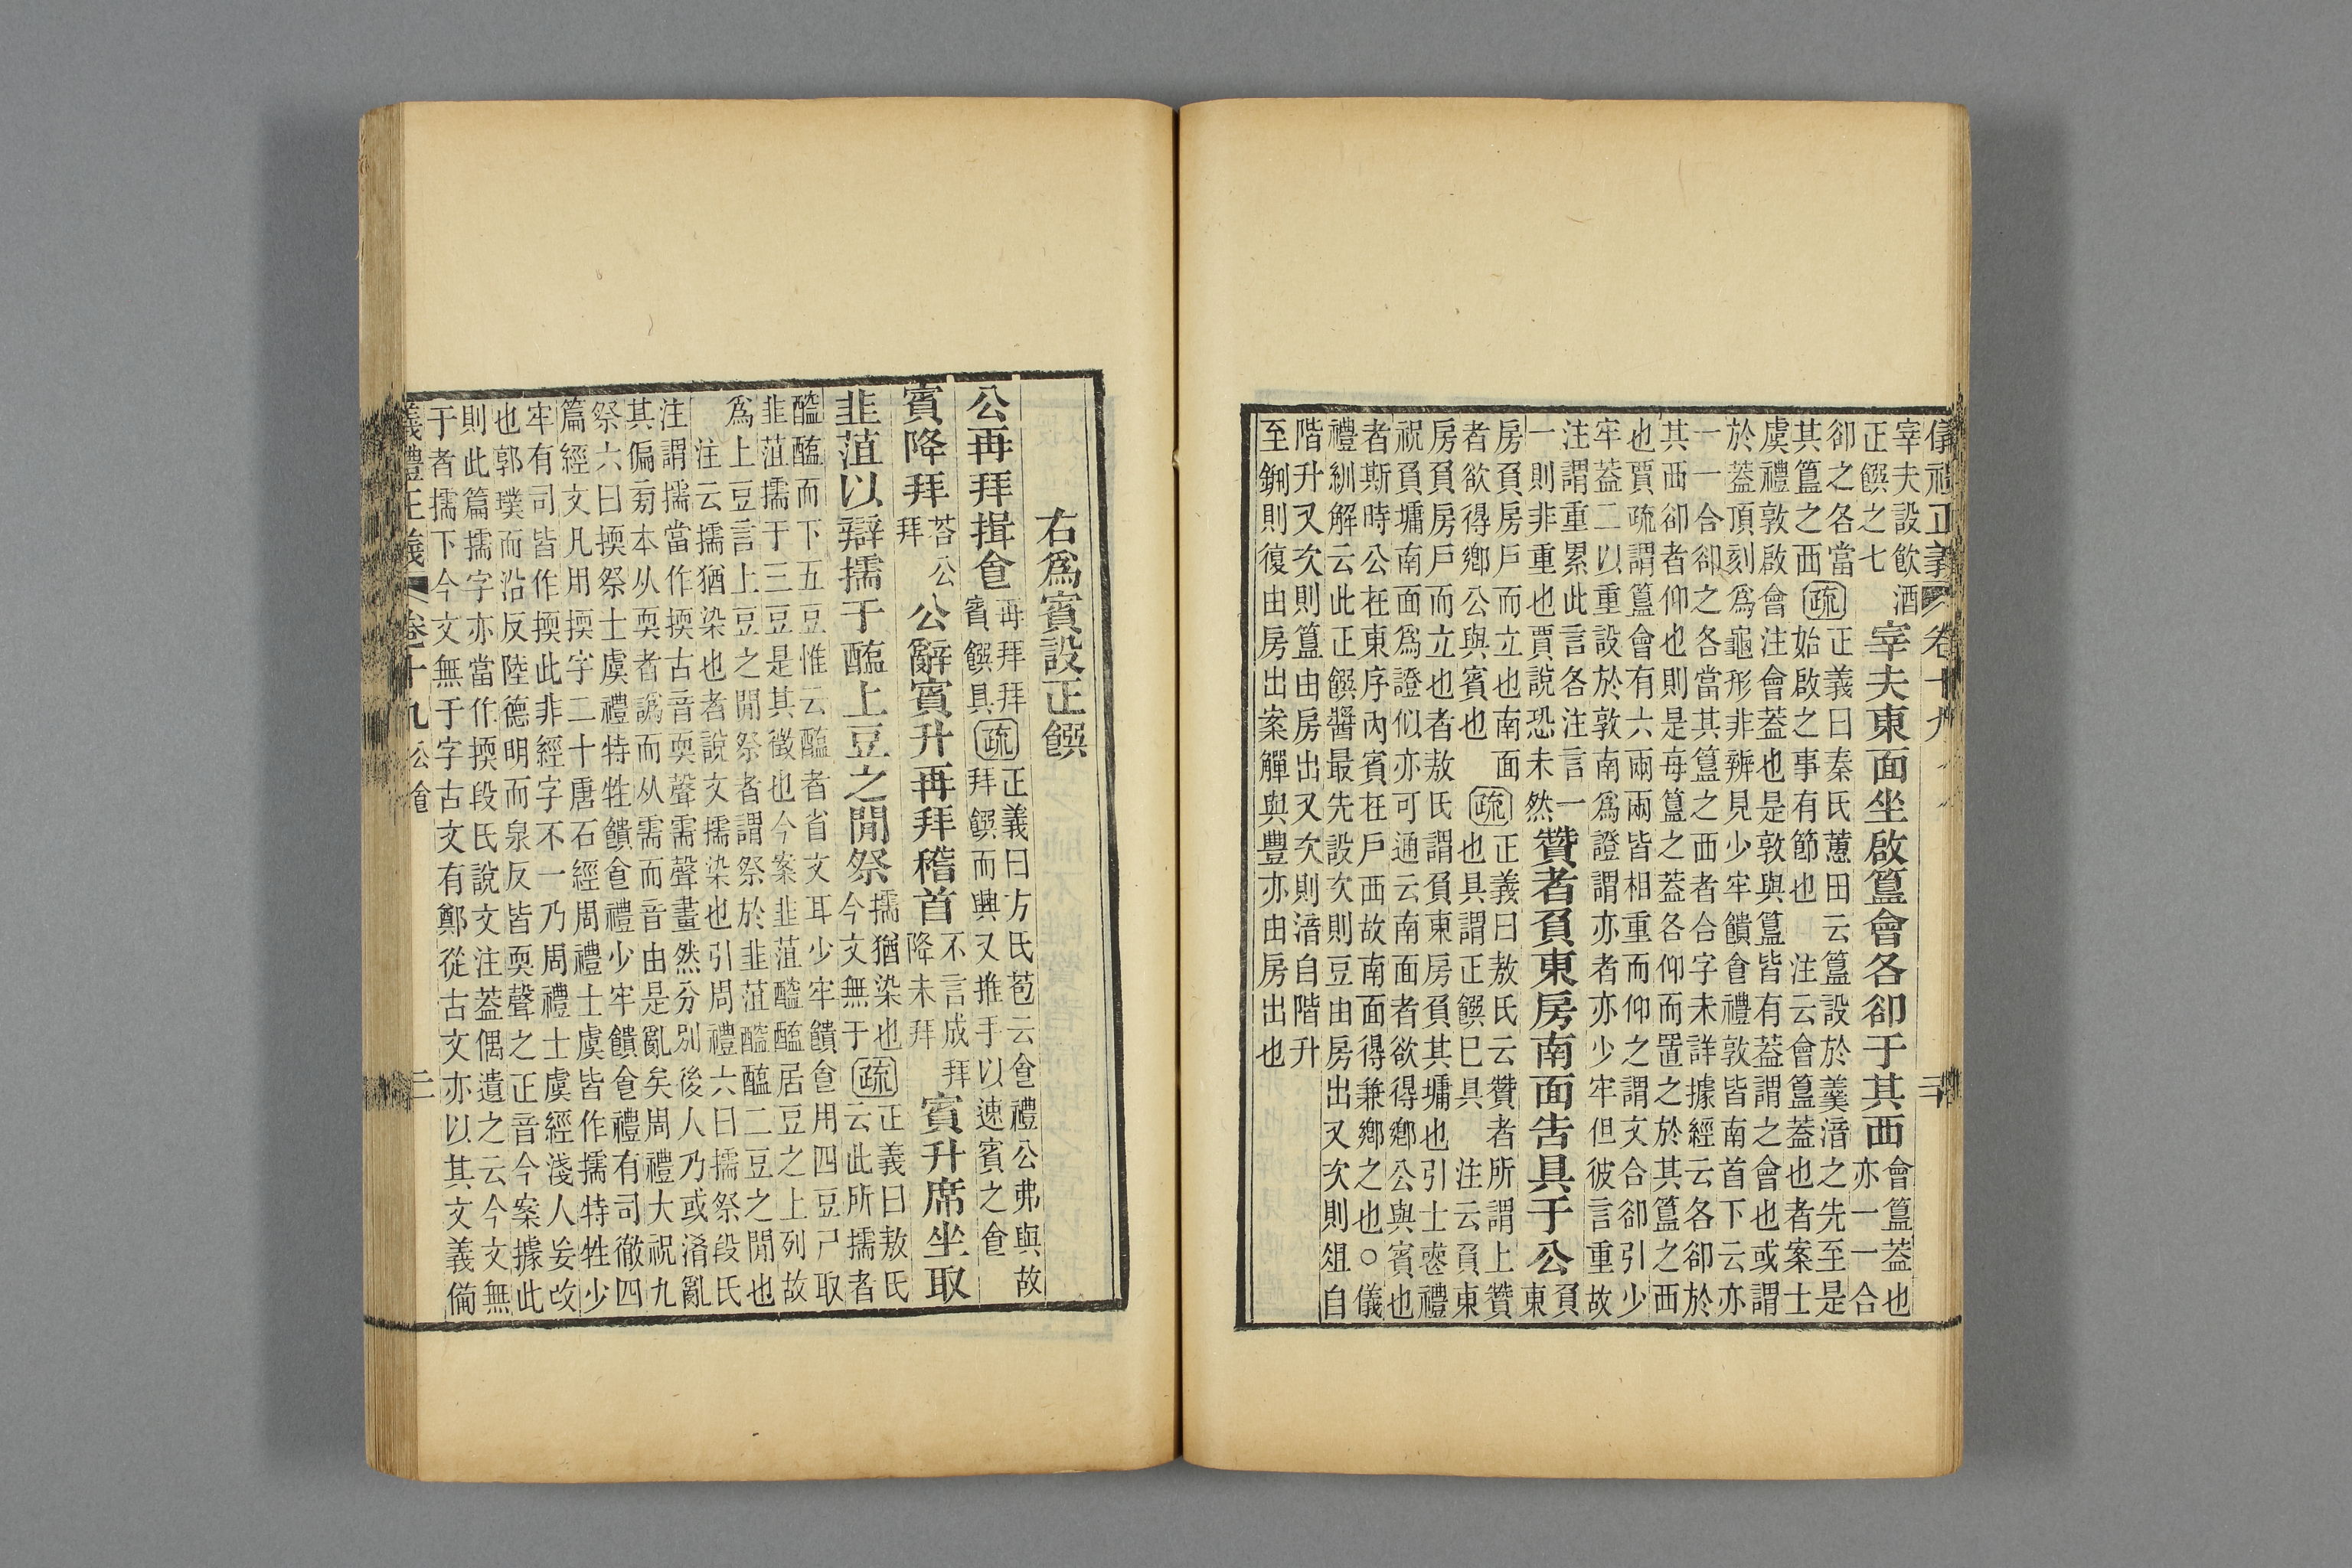 儀禮正義 卷十九
宰夫設飲酒
正饌之七
宰夫東面坐啟簋會各卻于其西
會簋蓋也
亦一一合
卻之各當
其簋之西
疏
正義曰秦氏蕙田云簋設於羹湆之先至是
始啟之事有節也 注云會簋蓋也者案士
虞禮敦啟會注會蓋也是敦與簋皆有蓋謂之會也或謂
於蓋頂刻為龜形非辨見少牢饋食禮敦皆南首下云亦
一一合卻之各當其簋之西者合字未詳據經云各卻於
其西卻者仰也則是每簋之蓋各仰而置之於其簋之西
也賈疏謂簋會有六兩兩皆相重而仰之謂文合卻引少
牢蓋二以重設於敦南為證謂亦者亦少牢但彼言重故
注謂重累此言各注言一
一則非重也賈說恐未然
贊者負東房南面告具于公
負
東
房負房戶而立也南面
者欲得鄉公與賓也
疏
正義曰敖氏云贊者所謂上贊
也具謂正饌巳具 注云負東
房負房戶而立也者敖氏謂負東房負其墉也引士喪禮
祝負墉南面為證似亦可通云南面者欲得鄉公與賓也
者斯時公在東序內賓在戶西故南面得兼鄉之也○儀
禮紃解云此正饌醬最先設次則豆由房出又次則俎自
階升又次則簋由房出又次則湆自階升
至鉶則復由房出案觶與豐亦由房出也
右爲賓設正饌
公再拜揖食
再拜拜
賓饌具
疏
正義曰方氏苞云食禮公弗與故
拜饌而興又推手以速賓之食
賓降拜
荅公
拜
公辭賓升再拜稽首
不言成拜
降未拜
賓升席坐取
韭菹以辯擩于醢上豆之閒祭
擩猶染也
今文無于
疏
正義曰敖氏
云此所擩者
醓醢而下五豆惟云醢者省文耳少牢饋食用四豆尸取
韭菹擩于三豆是其徵也今案韭菹醓醢居豆之上列故
爲上豆言上豆之閒祭者謂祭於韭菹醓醢二豆之閒也
注云擩猶染也者說文擩染也引周禮六曰擩祭段氏
注謂擩當作㨎古音耎聲需聲畫然分別後人乃或淆亂
其偏旁本从耎者譌而从需而音由是亂矣周禮大祝九
祭六曰㨎祭士虞禮特牲饋食禮少牢饋食禮有司徹四
篇經文凡用㨎字二十唐石經周禮士虞皆作擩特牲少
牢有司皆作㨎此非經字不一乃周禮士虞經淺人妄改
也郭璞而沿反陸德明而泉反皆耎聲之正音今案據此
則此篇擩字亦當作㨎段氏說文注蓋偶遺之云今文無
于者擩下今文無于字古文有鄭從古文亦以其文義備
義禮正義 卷十九 公食 二